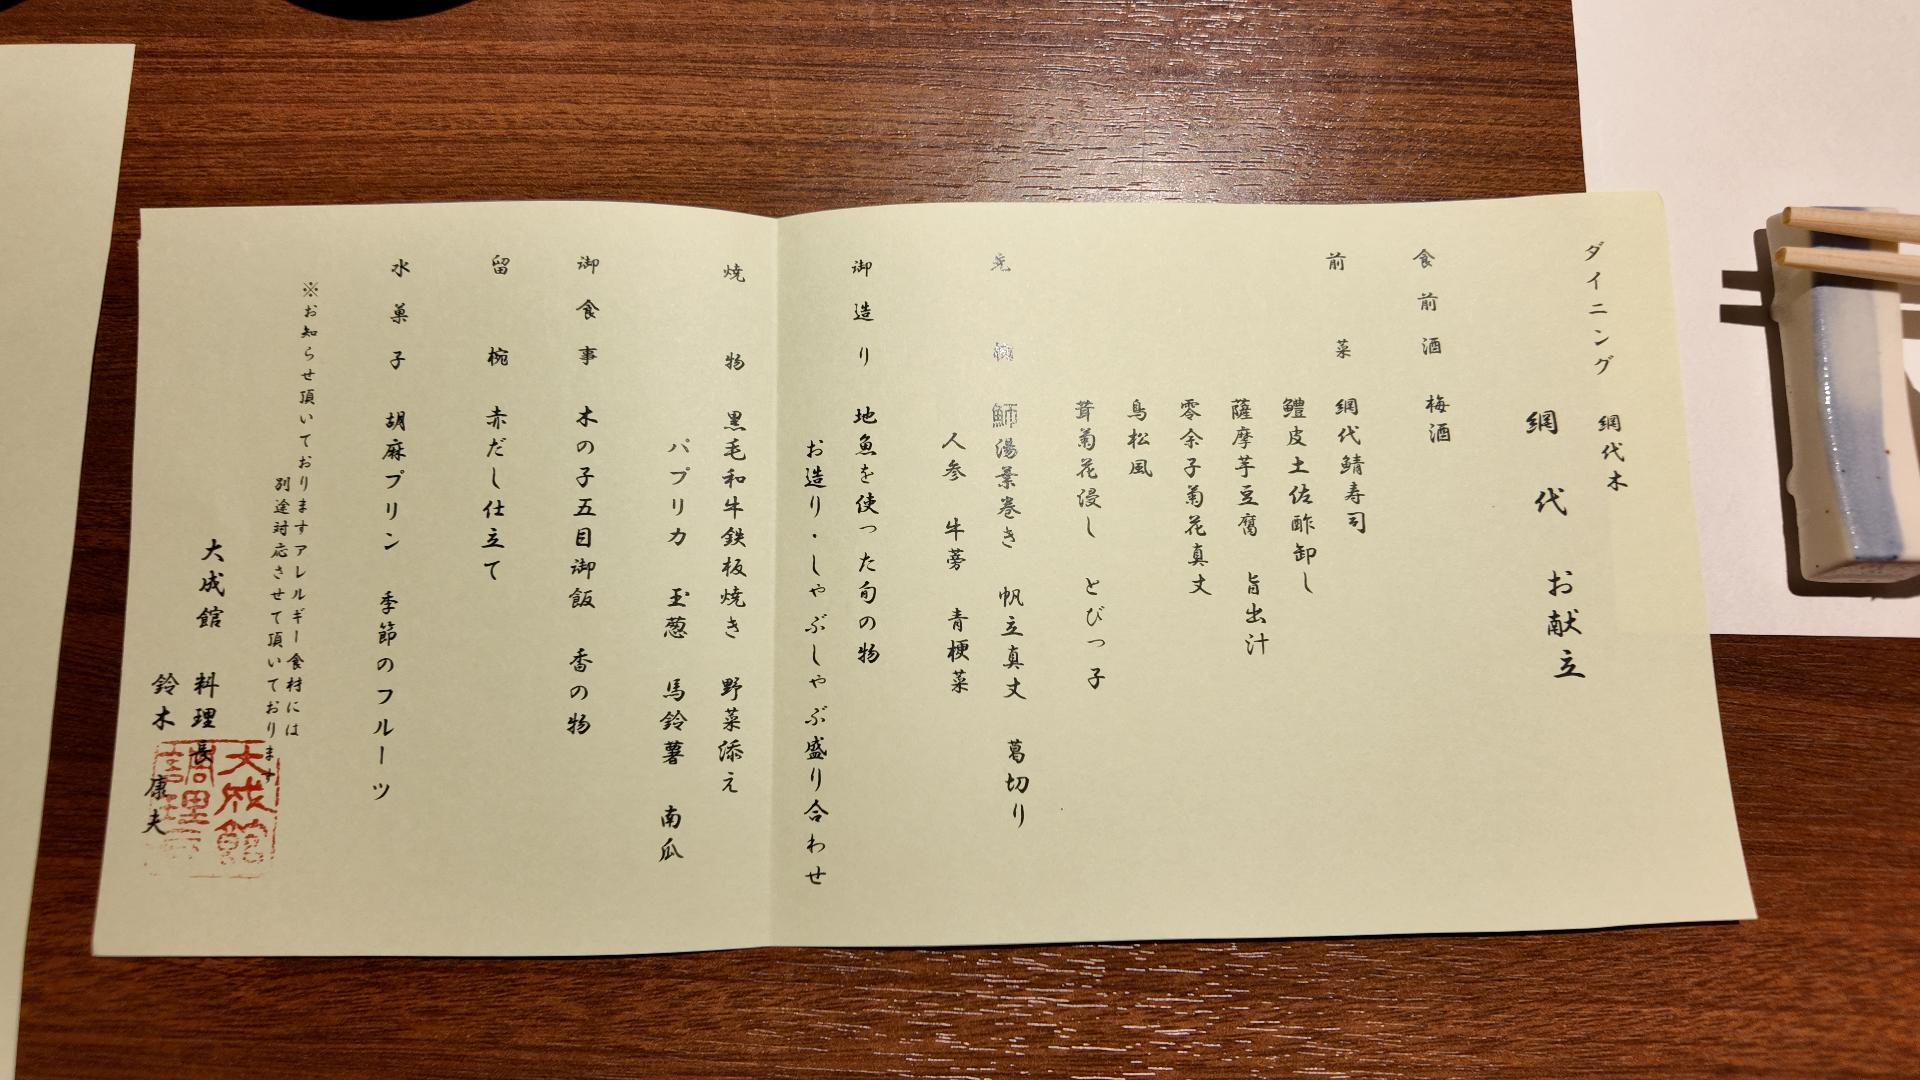 ダイニング 網代木
網代 お献立
食前酒 梅酒
前菜 網代鯖寿司
鱧皮土佐酢卸し
薩摩芋豆腐 旨出汁
零余子菊花真丈
鳥松風
茸菊花浸し とびっ子
椀 鰤湯葉巻き 帆立真丈 葛切り
人参 牛蒡 青梗菜
御造り 地魚を使った旬の物
お造り・しゃぶしゃぶ盛り合わせ
焼物 黒毛和牛鉄板焼き 野菜添え
パプリカ 玉葱 馬鈴薯 南瓜
御食事 木の子五目御飯 香の物
留椀 赤だし仕立て
水菓子 胡麻プリン 季節のフルーツ
※お知らせ頂いておりますアレルギー食材には
別途対応させて頂いております
大成館 料理長
鈴木 康夫
大成館
調理